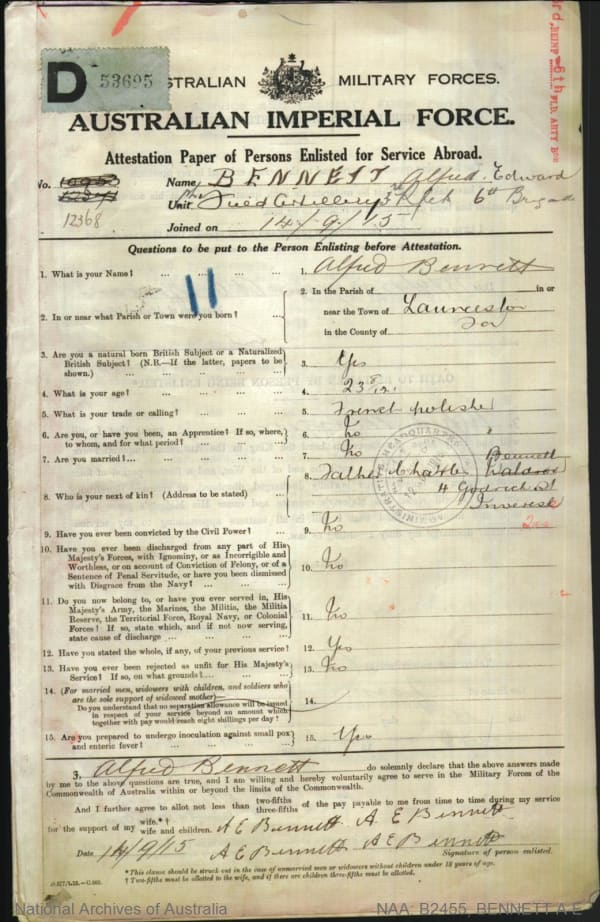 D 53695
AUSTRALIAN MILITARY FORCES.
AUSTRALIAN IMPERIAL FORCE.
Attestation Paper of Persons Enlisted for Service Abroad.
No. 12368
Name BENNETT Alfred Edward
Unit Field Artillery 3rd Rfcts 6th Brigade
Joined on 14/9/15
Questions to be put to the Person Enlisting before Attestation.
1. What is your Name? ... 1. Alfred Bennett
11
2. In or near what Parish or Town were you born? ... 2. In the Parish of in or
near the Town of Launceston
in the County of Tas
3. Are you a natural born British Subject or a Naturalized
British Subject? (N.B.—If the latter, papers to be
shown.) ... 3. Yes
4. What is your age? ... 4. 23 8/12
5. What is your trade or calling? ... 5. French polisher
6. Are you, or have you been, an Apprentice? If so, where,
to whom, and for what period? ... 6. No
7. Are you married?... 7. No
8. Who is your next of kin? (Address to be stated) ... 8. Father Charles Bennett
4 Goderich St
Inveresk
Tas
9. Have you ever been convicted by the Civil Power? ... 9. No
10. Have you ever been discharged from any part of His
Majesty's Forces, with Ignominy, or as Incorrigible and
Worthless, or on account of Conviction of Felony, or of a
Sentence of Penal Servitude, or have you been dismissed
with Disgrace from the Navy? ... 10. No
11. Do you now belong to, or have you ever served in, His
Majesty's Army, the Marines, the Militia, the Militia
Reserve, the Territorial Force, Royal Navy, or Colonial
Forces? If so, state which, and if not now serving,
state cause of discharge ... 11. No
12. Have you stated the whole, if any, of your previous service? 12. Yes
13. Have you ever been rejected as unfit for His Majesty's
Service? If so, on what grounds?... 13. No
14. (For married men, widowers with children, and soldiers who
are the sole support of widowed mother)—
Do you understand that no separation allowance will be issued
in respect of your service beyond an amount which
together with pay would reach eight shillings per day? 14.
15. Are you prepared to undergo inoculation against small pox
and enteric fever? ... 15. Yes
I, Alfred Bennett do solemnly declare that the above answers made
by me to the above questions are true, and I am willing and hereby voluntarily agree to serve in the Military Forces of the
Commonwealth of Australia within or beyond the limits of the Commonwealth.
And I further agree to allot not less than two-fifths three-fifths of the pay payable to me from time to time during my service
for the support of my wife.*† wife and children. A E Bennett A E Bennett
Date 14/9/15 A E Bennett A E Bennett
Signature of person enlisted.
* This clause should be struck out in the case of unmarried men or widowers without children under 18 years of age.
† Two-fifths must be allotted to the wife, and if there are children three-fifths must be allotted.
National Archives of Australia
NAA: B2455, BENNETT A E